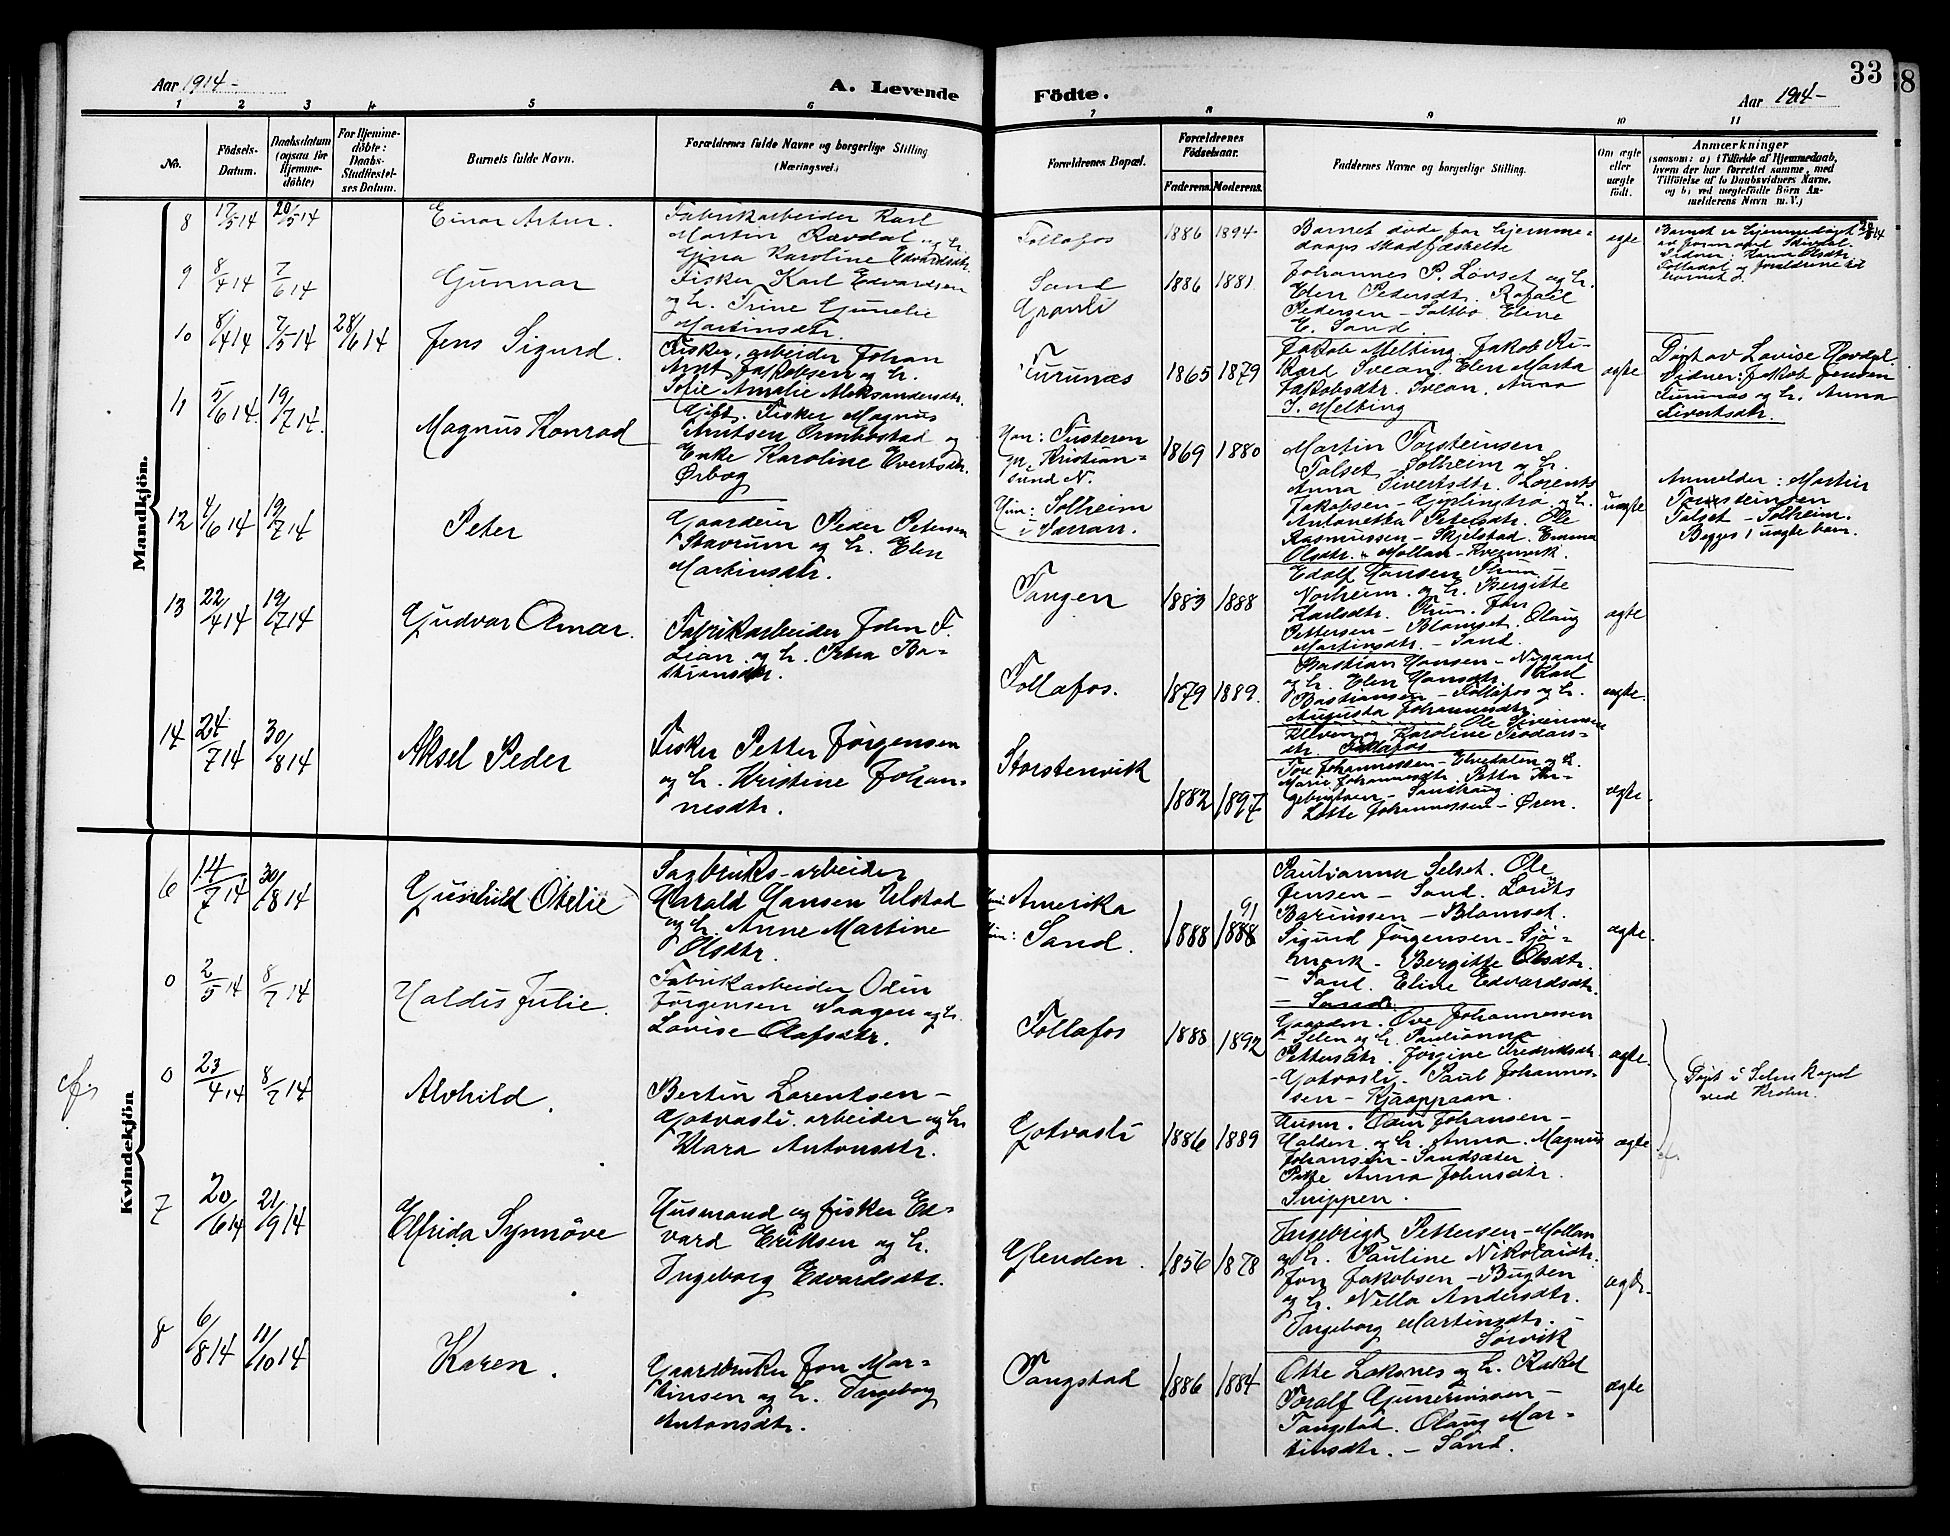 Aar 1914-
A. Levende
Födte.
Aar 1914-
33
1 2 3 4 5 6 7 8 9 10 11
No.
Födsels-
Datum.
Daabsdatum
(ogsaa for
Hjemme-
döbte)
For Hjemme-
döbte:
Daabs-
Stadfæstel-
ses Datum.
Barnets fulde Navn.
Forældrenes fulde Navne og borgerlige Stilling
(Næringsvei.)
Forældrenes Bopæl.
Forældrenes
Födselsaar.
Faderens. Moderens.
Faddernes Navne og borgerlige Stilling.
Om ægte
eller
uægte
födt.
Anmærkninger
(saasom: a) i Tilfælde af Hjemmedaab,
hvem der har forrettet samme, med
Tilföielse af to Daabsvidners Navne,
og b) ved uægtefödte Börn An-
melderens Navn m. V.)
Mandkjön.
8
17/5 14
20/5 14
Einar Artur.
Fabrikarbeider Karl
Martin Rævdal og h.
Gina Karoline Edvardsdtr.
Follafos
1886
1894
Barnet døde før hjemme-
daaps stadfæstelse
egte
9
8/4 14
7/6 14
Gunnar
Fisker Karl Edvardsen
og h. Trine Gunelie
Martinsdtr.
Sand
Grønli
1886
1881.
Johannes P. Løvset og h.
Elen Petersdtr. Rafael
Pedersen - Saltbo. Eline
E. Sand.
10
8/4 14
7/5 14
28/6 14
Jens Sigurd.
Fisker, arbeider Johan
Arnt Jakobsen og h.
Sofie Amalie Aleksandersdtr.
Furunæs
1865
1879
Jakob Melting. Jakob Ri-
kard Svean. Elen Marta
Jakobsdtr. Svean. Anna
J. Melting
ægte
Døpt av Lovise Hovdal
Vidner: Jakob Jensen
Furunæs og h. Anna
Sivertsdtr.
11
5/6 14.
19/7 14.
Magnus Konrad
Gift. Fisker Magnus
Arntsen Ormbostad og
Enke Karoline Evertsdtr.
Ørbog
Han: Tusteren
pr. Kristian-
sund N.
Hun: Solheim
i Verran.
1869
1880
Martin Torsteinsen
Talset - Solheim og h.
Anna Sivertsdtr. Lorents
Jakobsen - og h.
Antonetta Petersdtr. Ole
Rasmussen - Skjelstad. Emma
Olsdtr. Mollan - Kvernvik.
uægte
Anmelder: Martin
Torsteinsen
Talset - Solheim.
Begges 1 uægte barn.
12
4/6 14
19/7 14
Peter
Gaardeier Peder Petersen
Stavrum og h. Elen
Martinsdtr.
Tangen
1883
1888
Edolf Hansen
Norheim. og h. Bergitte
Karlsdtr. Jon
Pettersen - Blomset. Olaug
Martinsdtr. - Sand.
ægte
13
22/4 14
19/7 14
Gudvar Omar.
Fabrikarbeider John F.
Lian. og h. Petra Ba-
stiansdtr.
Follafos.
1879
1889.
Bastian Hansen - Nygaard
og h. Elen Hansdtr. Karl
Bastiansen - Follafos og h.
Augusta Johannesdtr.
Ole Sivertsen
Karoline
dtr. Follafos
ægte.
14
24/7 14
30/8 14
Aksel Peder
Fisker Petter Jørgensen
og h. Kristine Johan-
nesdtr.
Storstenvik
1882
1897
Tore Johannessen - Elvedalen og h.
Marie Johannesdtr. Petter In-
gebrigtsen - Sandhaug.
Lotte Johannessen - Øren.
ægte.
Kvindekjön
6
14/7 14
30/8 14
Gunhild Otelie
Sagbruks-arbeider
Harald Hansen Ulstad
og h. Anne Martine
Olsdtr.
Han: Amerika
Hun: Sand.
1888
91
1888
Paulianna Selset. Ole
Jensen - Sand. Lorits
Bariussen - Blomset.
Sigurd Jørgensen - Sjø-
mark - Bergitte Olsdtr.
- Sand. Eline Edvardsdtr.
- Sand.
ægte.
0
2/5 14
8/7 14
Haldis Julie.
Fabrikarbeider Odin
Jørgensen Vaagen og h.
Lovise Olafsdtr.
Follafos
1888
1892
Gaardm. Ove Johannessen
- Selen og h. Paulianna
Pettersdtr. Jørgine Fredriksdtr.
- Gotvasli. Paul Johannes-
sen - Kjærppaan.
ægte.
Døpt i Selens kapel
ved Krohn.
cfr.
0
23/4 14
8/7 14
Alvhild.
Bertin Lorentsen -
Gotvasli. arbeider og h.
Klara Antonsdtr.
Gotvasli
1886
1889
Husm. Odin Johansen -
Halden og h. Anna. Magnus
Johansen - Sandsæter
Pike Anna Johnsdtr.
Snippen.
ægte
cfr.
7
20/6 14
21/9 14
Elfrida Synnöve
Husmand og fisker Ed-
vard Eriksen og h.
Ingeborg Edvardsdtr.
Glenden.
1856
1878
Ingebrigt Pettersen - Mollan
og h. Pauline Nikolaidtr.
Jon Jakobsen - Bugten
og h. Nella Andersdtr.
Ingeborg Martinsdtr. -
Sørvik
ægte.
8
6/8 14
11/10 14
Karen.
Gaardbruker Jon Mar-
tinsen og h. Ingeborg
Antonsdtr.
Tangstad
1886
1884
Otte Loksnes og h. Rakel
Toralf Gunerinsen -
Tangstad. Olaug Mar-
tinsdtr. - Sand.
ægte